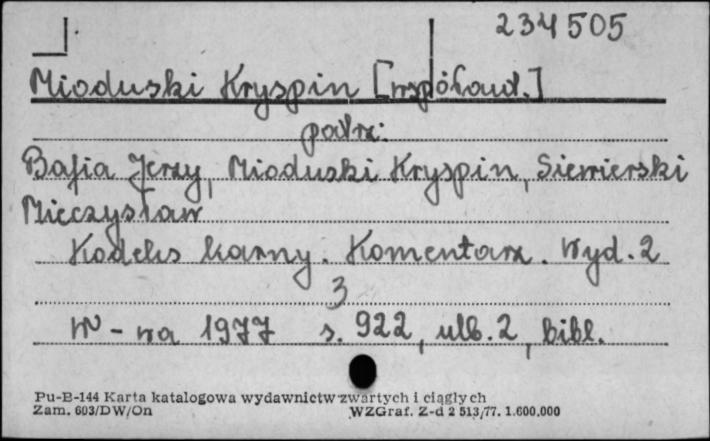 234505
Mioduski Kryspin [współaut.]
patrz:
Bafia Jerzy, Mioduski Kryspin, Siewierski
Mieczysław
Kodeks karny. Komentarz. Wyd. 2
3
W-wa 1977 s. 922, ulb. 2, bibl.
Pu-B-144 Karta katalogowa wydawnictw zwartych i ciągłych
Zam. 603/DW/On WZGraf. Z-d 2 513/77. 1.600.000